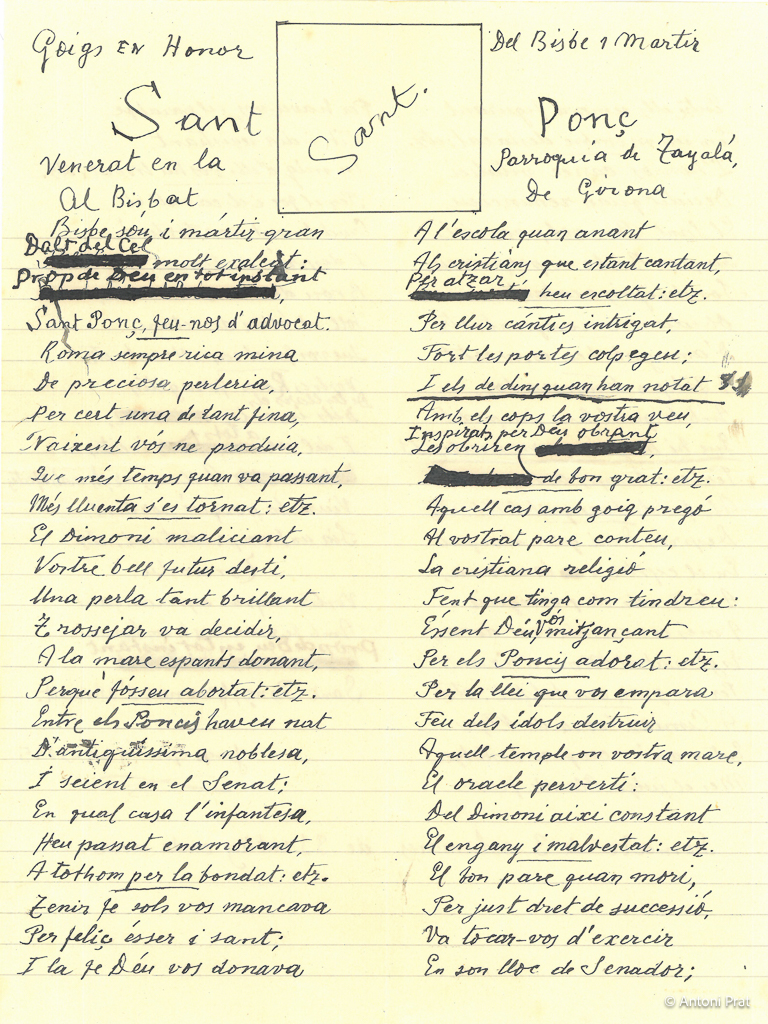 Goigs en Honor
Del Bisbe i Martir
Sant
Sant.
Ponç
Venerat en la
Parroquia de Zayalá,
Al Bisbat
De Girona
Bisbe sóu i mártir gran
Dalt del Cel
molt exalçat:
Prop de Déu en tot instant
Sant Ponç, feu-nos d'advocat.
Roma sempre rica mina
De preciosa perleria,
Per cert una de tant fina,
Naixent vós ne produia,
Que més temps quan va passant,
Més lluenta s'es tornat: etz.
El Dimoni maliciant
Vostre bell futur desti,
Una perla tant brillant
Z rossejar va decidir,
A la mare espants donant,
Perquè fósseu abortat: etz.
Entre els Poncis haveu nat
D'antiquíssima noblesa,
I seient en el Senat;
En qual casa l'infantesa,
Heu passat enamorant,
A tothom per la bondat: etz.
Zenir fe sols vos mancava
Per feliç ésser i sant;
I la fe Déu vos donava
A l'escola quan anant
Als cristiàns que estant cantant,
Per atzar
heu escoltat: etz.
Per llur cántics intrigat,
Fort les portes colpegeu;
I els de dins quan han notat
Amb els cops la vostra veu,
Inspirats per Déu obrant
Les obriren
de bon grat: etz.
Aquell cas amb goig pregó
Al vostrat pare conteu,
La cristiana religió
Fent que tinga com tindreu:
Éssent Déu, vos mitjançant
Per els Poncis adorat: etz.
Per la llei que vos empara
Feu dels ídols destruir
Aquell temple on vostra mare,
El oracle pervertí:
Del Dimoni aixi constant
El engany i malvestat: etz.
El bon pare quan mori,
Per just dret de successió,
Va tocar-vos d'exercir
En son lloc de Senador;
© Antoni Prat